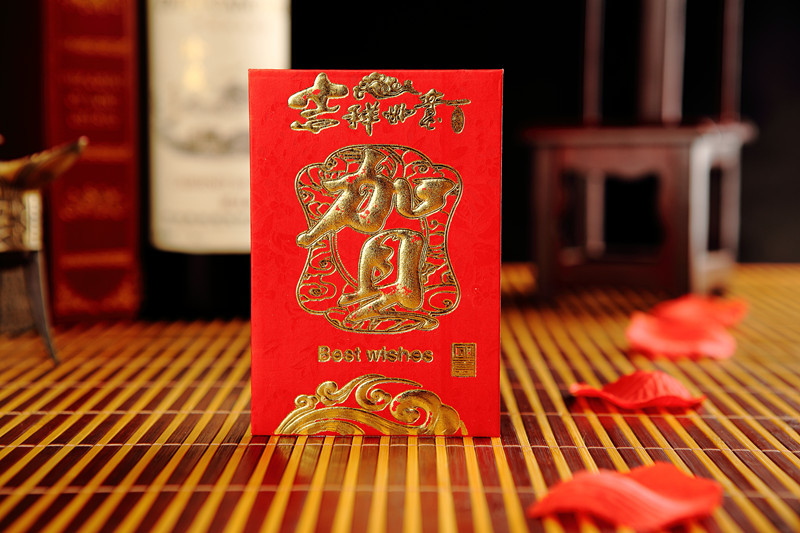 吉祥如意
贺
Best wishes